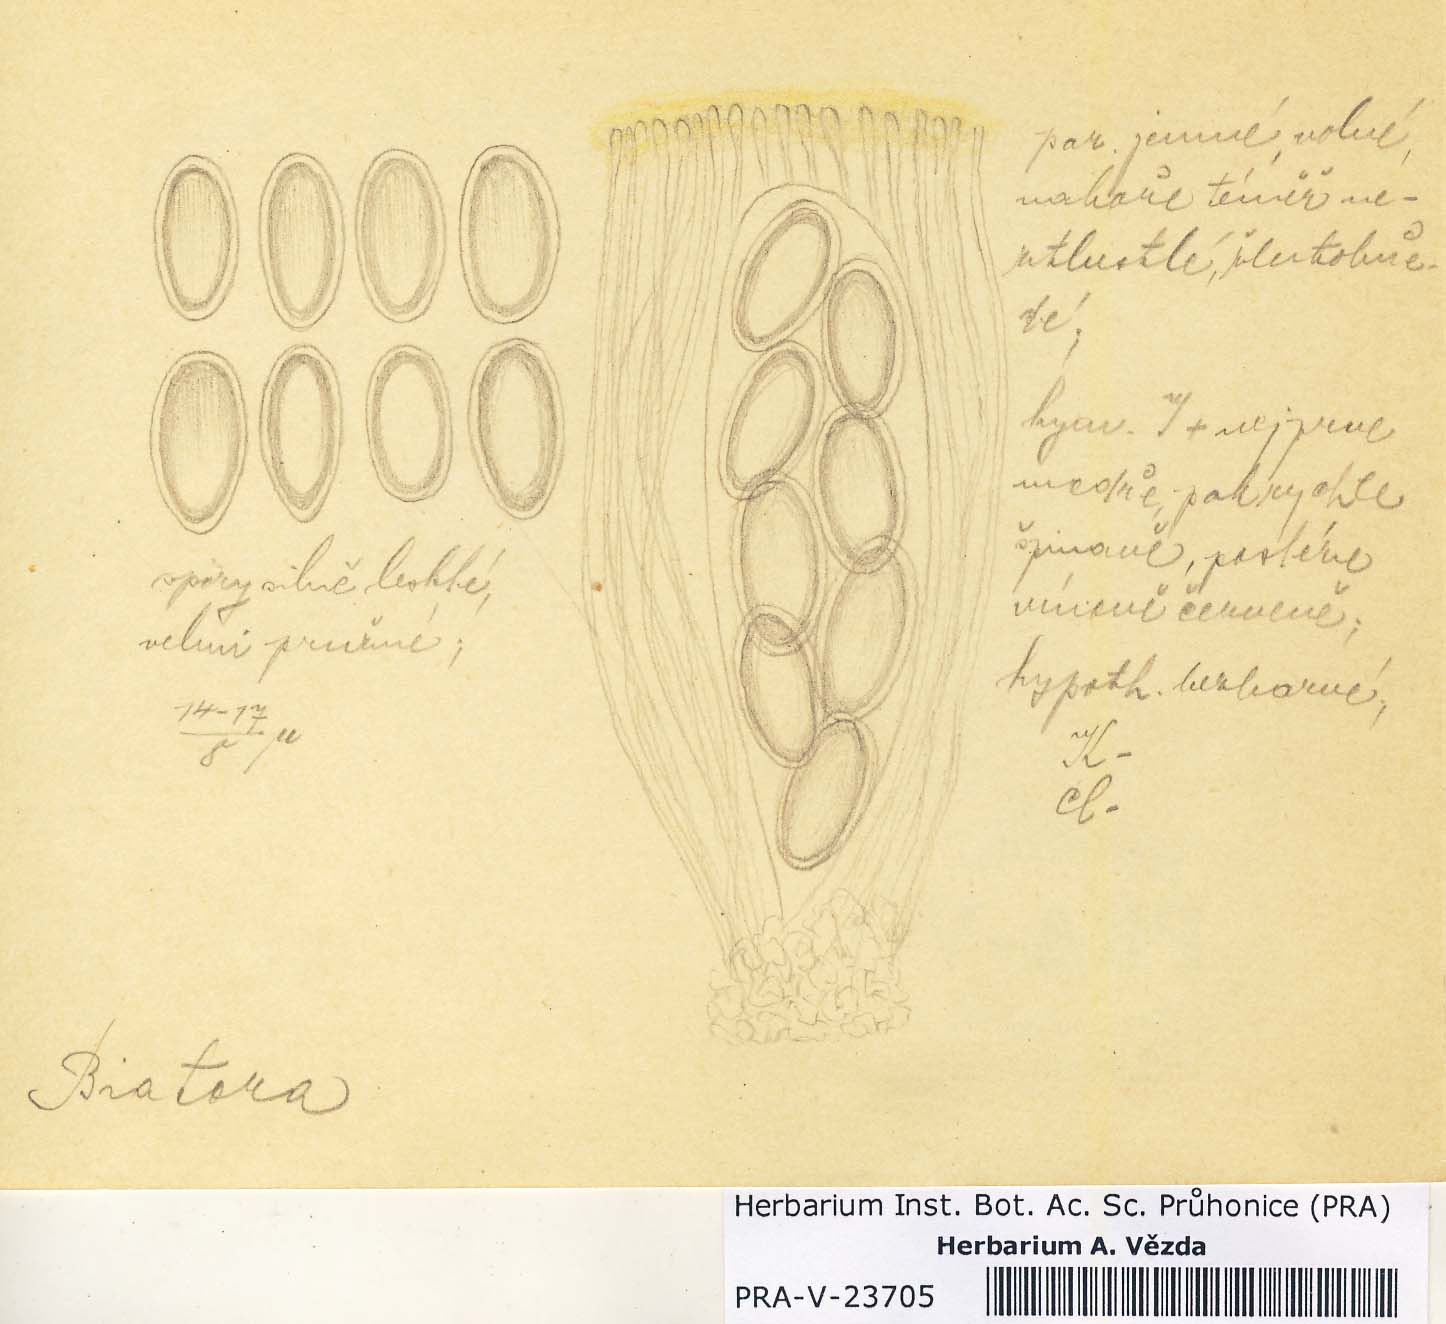 spory silně lesklé,
velmi pružné;
14-17
8 μ
par. jemné, volné,
nahoře téměř ne-
ztlustlé, žlutohně-
dé;
hym. J + nejprve
modře, pak rychle
špinavě, posléze
vínově červeně;
hypoth. bezbarvé;
K -
Cl -
Biatora
Herbarium Inst. Bot. Ac. Sc. Průhonice (PRA)
Herbarium A. Vězda
PRA-V-23705